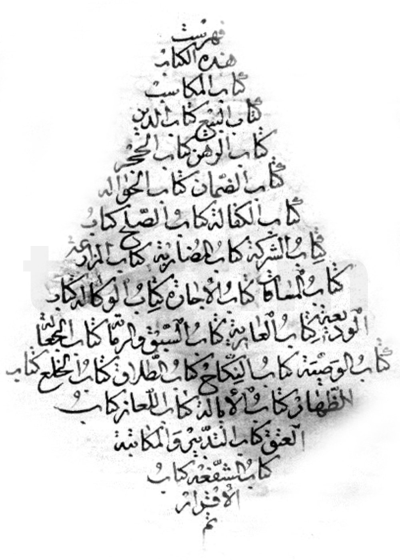 فهرست
هذه الكتاب
كتاب المكاسب
كتاب البيع كتاب الدين
كتاب الرهن كتاب الحجر
كتاب الضمان كتاب الحواله
كتاب الكفالة كتاب الصلح كتاب
كتاب الشركة كتاب المضاربة كتاب المزارعة
كتاب المساقات كتاب الاجارة كتاب الوكالة كتاب
الوديعة كتاب العارية كتاب السبق والرما كتاب الجعالة
كتاب الوصية كتاب النكاح كتاب الطلاق كتاب الخلع كتاب
الظهار كتاب الايلاء كتاب اللعان كتاب
العتق كتاب التدبير والمكاتبة
كتاب الشفعة كتاب
الاقرار
تم